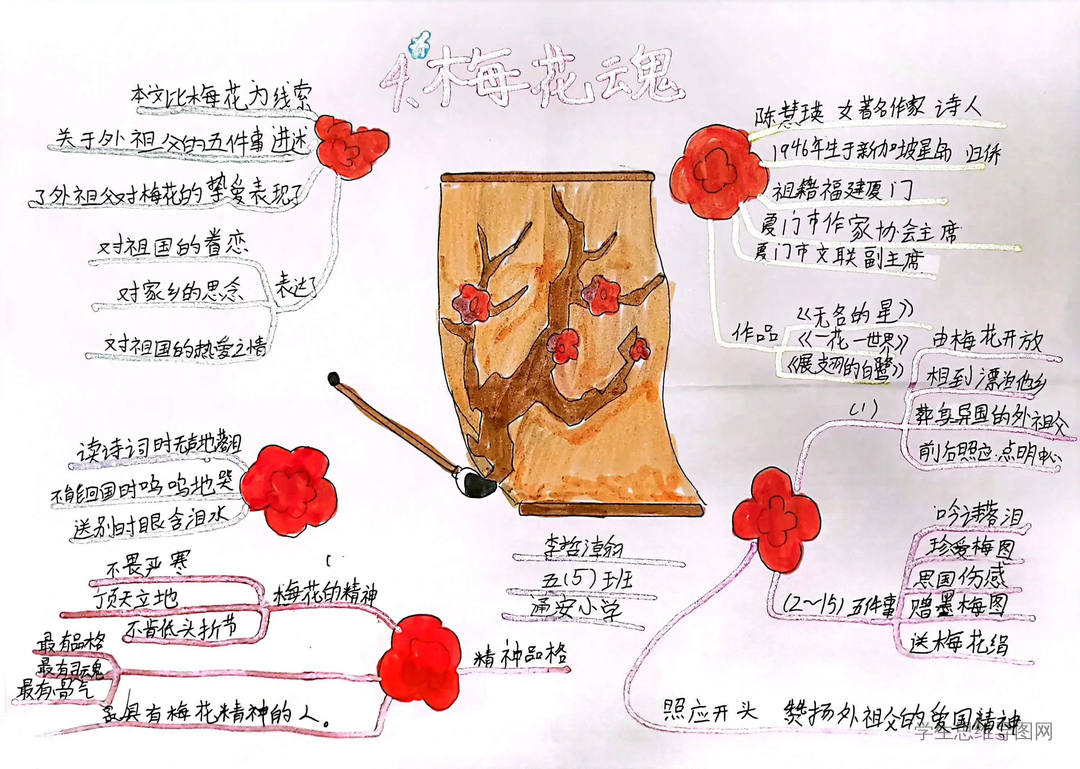 4、梅花魂
本文比梅花为线索
关于外祖父的五件事进述
了外祖父对梅花的挚爱表现了
对祖国的眷恋
对家乡的思念
对祖国的热爱之情
表达了
陈慧瑛 女著名作家 诗人
1946年生于新加坡星岛 归侨
祖籍福建厦门
厦门市作家协会主席
厦门市文联副主席
作品
《无名的星》
《一花一世界》
《展翅的白鹭》
(1)
由梅花开放
相到漂泊他乡
葬身异国的外祖父
前后照应·点明中心
读诗词时无声地落泪
不能回国时呜呜地哭
送别时眼含泪水
(2~15) 五件事
吟诗落泪
珍爱梅图
思国伤感
赠墨梅图
送梅花绢
五(5)班
小学
梅花的精神
不畏严寒
顶天立地
不肯低头折节
精神品格
最有品格
最有灵魂
最有骨气
是具有梅花精神的人。
照应开头 赞扬外祖父的爱国精神
学生思维导图网